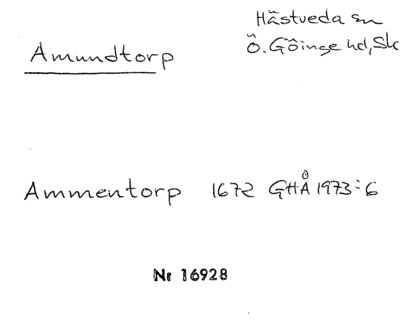 Hästveda sn
Amundtorp
Ö. Göinge hd, Sk
Ammentorp 1672 GHÅ 1973:6
Nr 16928